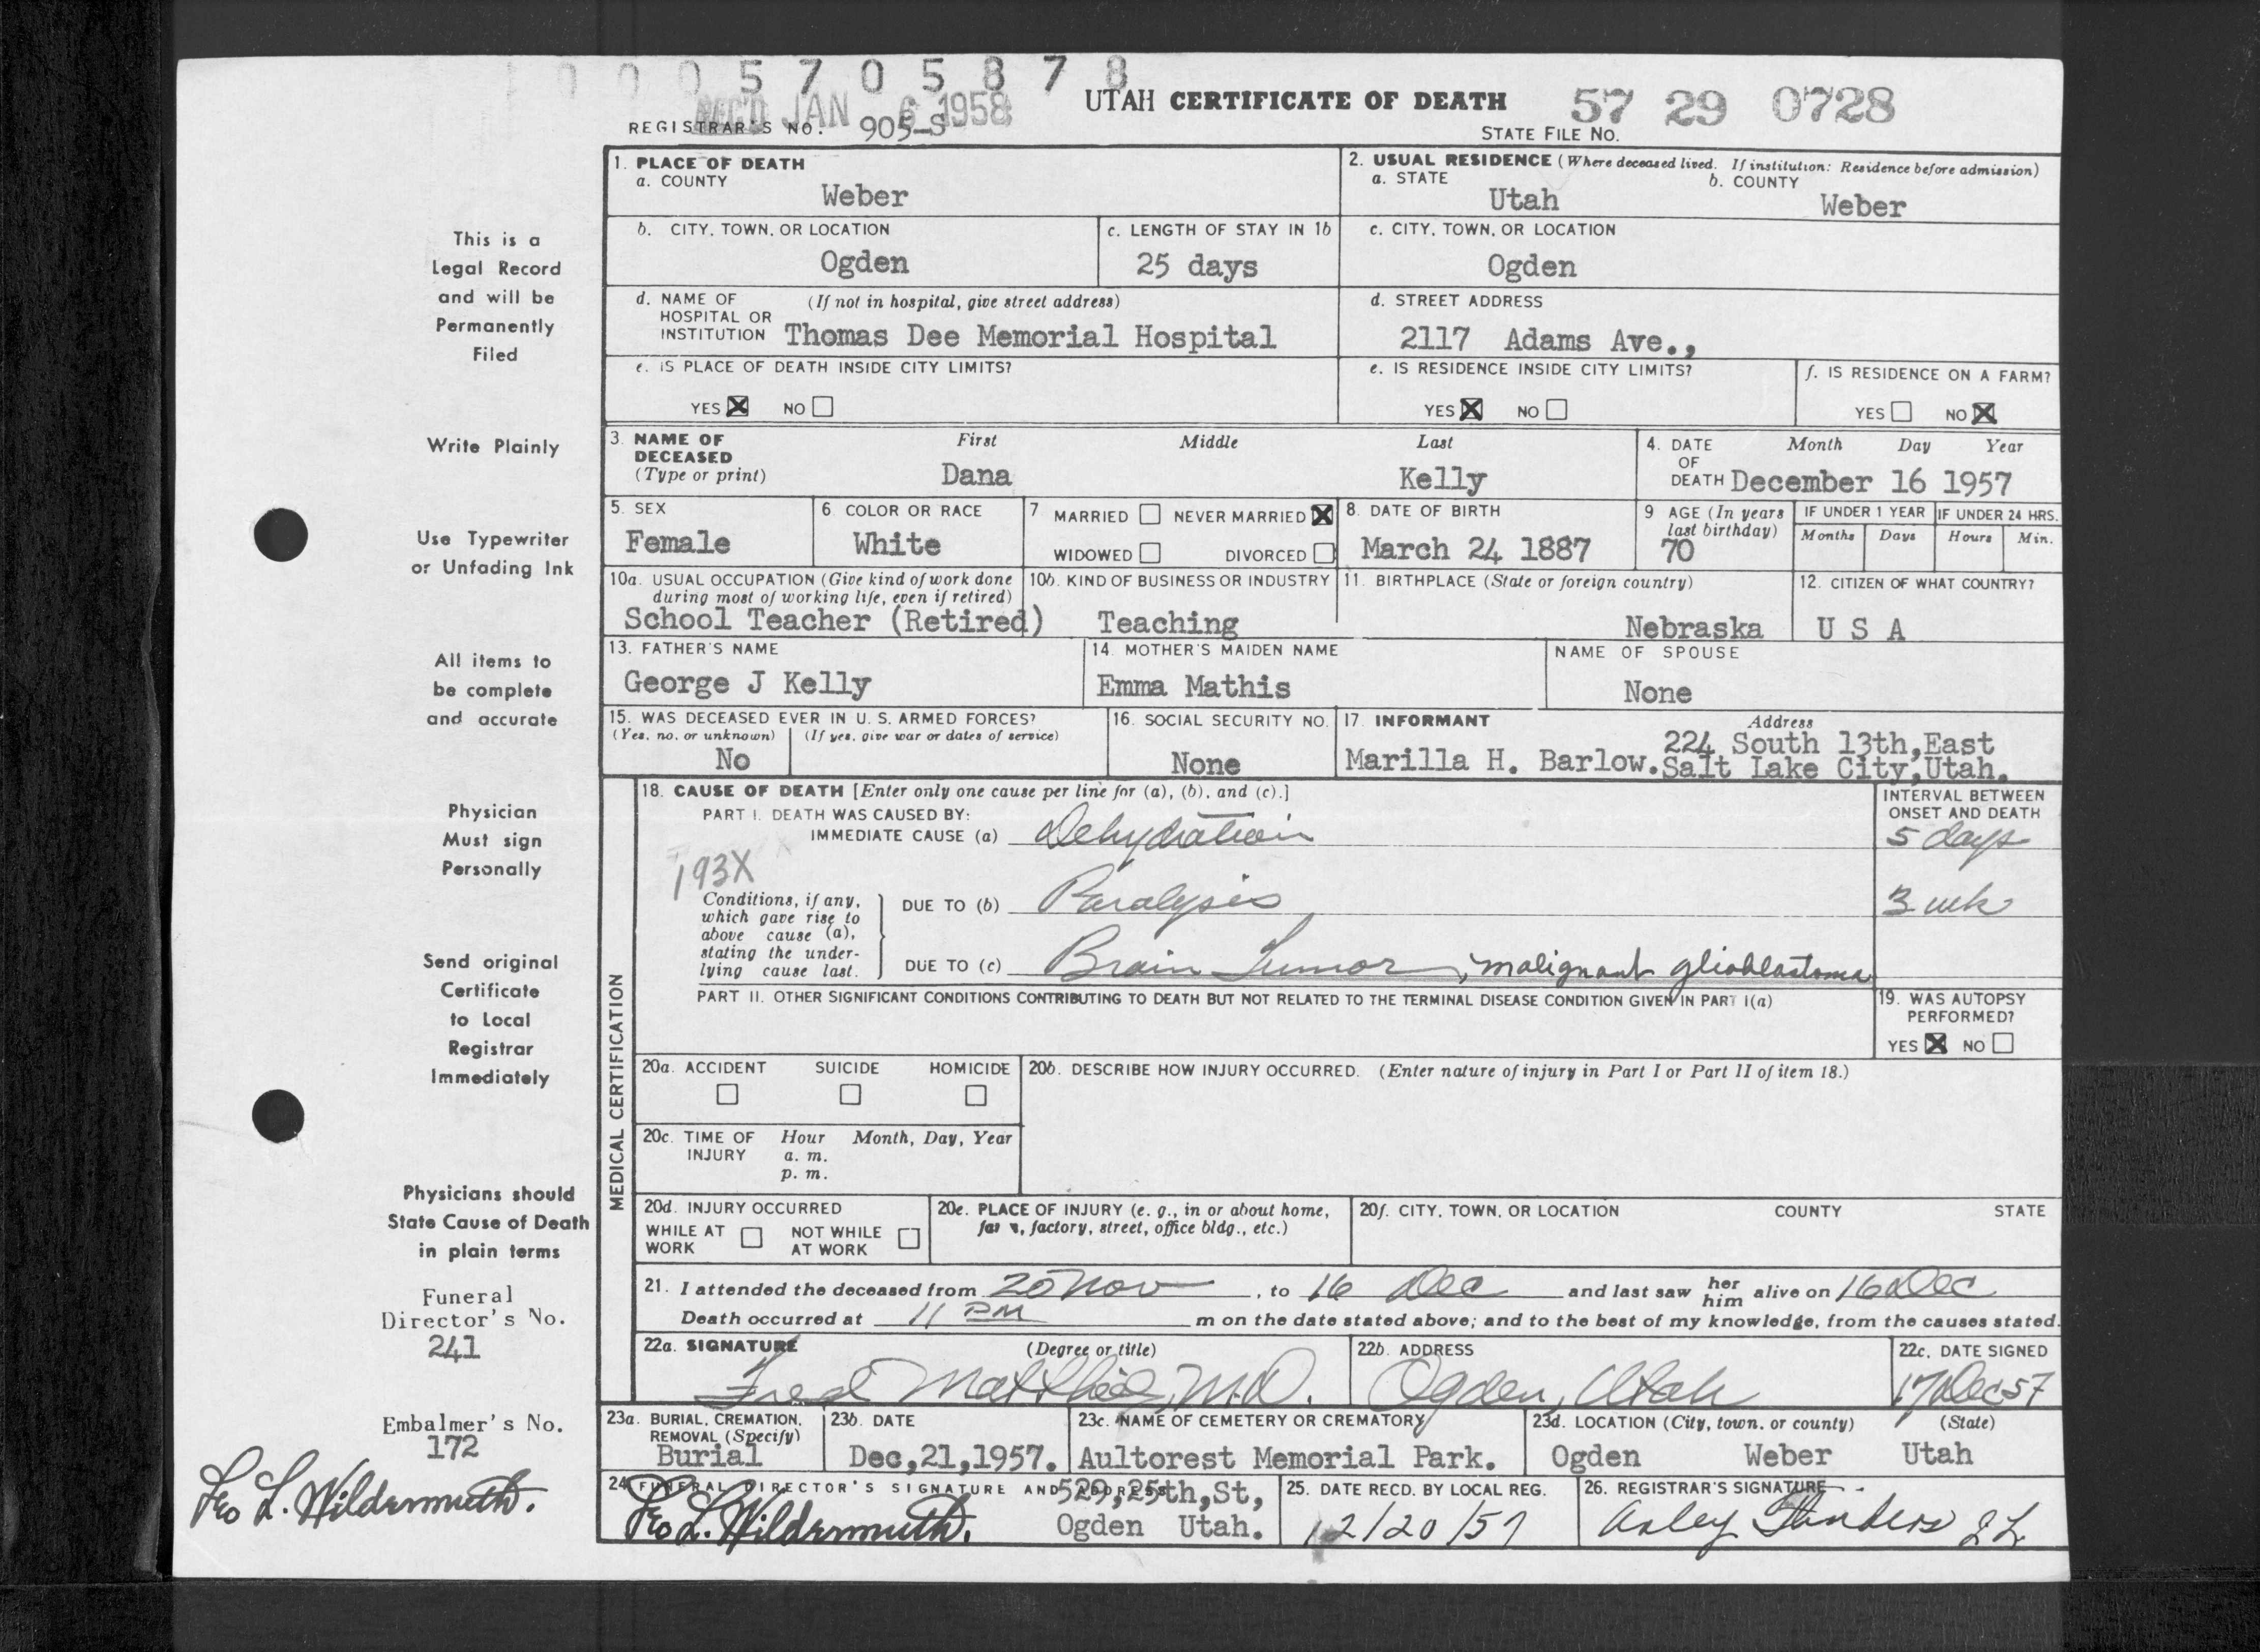 0 0 0 5 7 0 5 8 7 8
REC'D JAN 6 1958
UTAH CERTIFICATE OF DEATH
57 29 0728
REGISTRAR'S NO. 905-S
STATE FILE NO.
1. PLACE OF DEATH
a. COUNTY
Weber
2. USUAL RESIDENCE (Where deceased lived. If institution: Residence before admission)
a. STATE
Utah
b. COUNTY
Weber
b. CITY, TOWN, OR LOCATION
Ogden
c. LENGTH OF STAY IN 1b
25 days
c. CITY, TOWN, OR LOCATION
Ogden
d. NAME OF HOSPITAL OR INSTITUTION
(If not in hospital, give street address)
Thomas Dee Memorial Hospital
d. STREET ADDRESS
2117 Adams Ave.,
e. IS PLACE OF DEATH INSIDE CITY LIMITS?
YES X NO
e. IS RESIDENCE INSIDE CITY LIMITS?
YES X NO
f. IS RESIDENCE ON A FARM?
YES NO X
3. NAME OF DECEASED
(Type or print)
First Middle Last
Dana Kelly
4. DATE OF DEATH
Month Day Year
December 16 1957
5. SEX
Female
6. COLOR OR RACE
White
7. MARRIED NEVER MARRIED X
WIDOWED DIVORCED
8. DATE OF BIRTH
March 24 1887
9 AGE (In years last birthday)
70
IF UNDER 1 YEAR
Months Days
IF UNDER 24 HRS.
Hours Min.
10a. USUAL OCCUPATION (Give kind of work done during most of working life, even if retired)
School Teacher (Retired)
10b. KIND OF BUSINESS OR INDUSTRY
Teaching
11. BIRTHPLACE (State or foreign country)
Nebraska
12. CITIZEN OF WHAT COUNTRY?
U S A
13. FATHER'S NAME
George J Kelly
14. MOTHER'S MAIDEN NAME
Emma Mathis
NAME OF SPOUSE
None
15. WAS DECEASED EVER IN U. S. ARMED FORCES?
(Yes, no, or unknown) (If yes, give war or dates of service)
No
16. SOCIAL SECURITY NO.
None
17. INFORMANT
Address
Marilla H. Barlow. 224 South 13th, East
Salt Lake City, Utah.
MEDICAL CERTIFICATION
18. CAUSE OF DEATH [Enter only one cause per line for (a), (b), and (c).]
INTERVAL BETWEEN ONSET AND DEATH
PART I. DEATH WAS CAUSED BY:
IMMEDIATE CAUSE (a) Dehydration
5 days
193X
Conditions, if any, which gave rise to above cause (a), stating the underlying cause last.
DUE TO (b) Paralysis
3 wk
DUE TO (c) Brain Tumor, malignant glioblastoma
PART II. OTHER SIGNIFICANT CONDITIONS CONTRIBUTING TO DEATH BUT NOT RELATED TO THE TERMINAL DISEASE CONDITION GIVEN IN PART I(a)
19. WAS AUTOPSY PERFORMED?
YES X NO
20a. ACCIDENT SUICIDE HOMICIDE
20b. DESCRIBE HOW INJURY OCCURRED. (Enter nature of injury in Part I or Part II of item 18.)
20c. TIME OF INJURY
Hour Month, Day, Year
a. m.
p. m.
20d. INJURY OCCURRED
WHILE AT WORK NOT WHILE AT WORK
20e. PLACE OF INJURY (e. g., in or about home, farm, factory, street, office bldg., etc.)
20f. CITY, TOWN, OR LOCATION COUNTY STATE
21. I attended the deceased from 20 Nov, to 16 Dec and last saw her him alive on 16 Dec
Death occurred at 11 PM m on the date stated above; and to the best of my knowledge, from the causes stated.
22a. SIGNATURE (Degree or title)
Fred M.D.
22b. ADDRESS
Ogden, Utah
22c. DATE SIGNED
17 Dec 57
23a. BURIAL, CREMATION, REMOVAL (Specify)
Burial
23b. DATE
Dec, 21, 1957.
23c. NAME OF CEMETERY OR CREMATORY
Aultorest Memorial Park.
23d. LOCATION (City, town, or county) (State)
Ogden Weber Utah
24 FUNERAL DIRECTOR'S SIGNATURE AND ADDRESS
Leo L. Wildermuth.
529, 25th, St,
Ogden Utah.
25. DATE RECD. BY LOCAL REG.
12/20/57
26. REGISTRAR'S SIGNATURE
This is a
Legal Record
and will be
Permanently
Filed
Write Plainly
Use Typewriter
or Unfading Ink
All items to
be complete
and accurate
Physician
Must sign
Personally
Send original
Certificate
to Local
Registrar
Immediately
Physicians should
State Cause of Death
in plain terms
Funeral
Director's No.
241
Embalmer's No.
172
Leo L. Wildermuth.